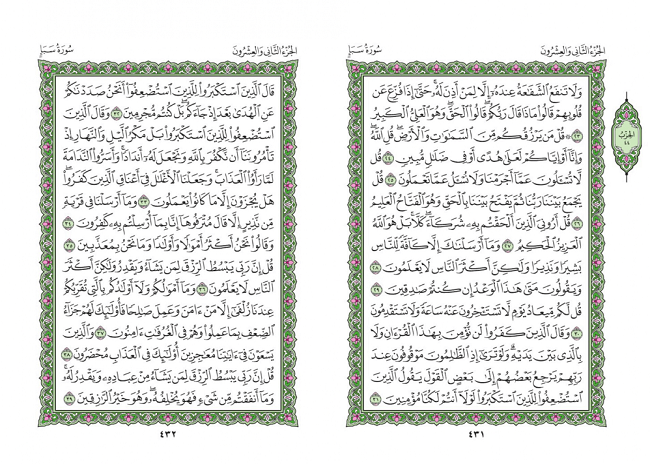 الجُزْءُ الثَّانِي وَالعِشْرُونَ
سُورَةُ سَبَإٍ
وَلَا تَنفَعُ ٱلشَّفَٰعَةُ عِندَهُۥٓ إِلَّا لِمَنْ أَذِنَ لَهُۥ ۚ حَتَّىٰٓ إِذَا فُزِّعَ عَن
قُلُوبِهِمْ قَالُوا۟ مَاذَا قَالَ رَبُّكُمْ ۖ قَالُوا۟ ٱلْحَقَّ ۖ وَهُوَ ٱلْعَلِىُّ ٱلْكَبِيرُ
٢٣ ۞ قُلْ مَن يَرْزُقُكُم مِّنَ ٱلسَّمَٰوَٰتِ وَٱلْأَرْضِ ۖ قُلِ ٱللَّهُ ۖ
وَإِنَّآ أَوْ إِيَّاكُمْ لَعَلَىٰ هُدًى أَوْ فِى ضَلَٰلٍ مُّبِينٍ ٢٤ قُل
لَّا تُسْـَٔلُونَ عَمَّآ أَجْرَمْنَا وَلَا نُسْـَٔلُ عَمَّا تَعْمَلُونَ ٢٥ قُلْ
يَجْمَعُ بَيْنَنَا رَبُّنَا ثُمَّ يَفْتَحُ بَيْنَنَا بِٱلْحَقِّ وَهُوَ ٱلْفَتَّاحُ ٱلْعَلِيمُ
٢٦ قُلْ أَرُونِىَ ٱلَّذِينَ أَلْحَقْتُم بِهِۦ شُرَكَآءَ ۖ كَلَّا ۚ بَلْ هُوَ ٱللَّهُ
ٱلْعَزِيزُ ٱلْحَكِيمُ ٢٧ وَمَآ أَرْسَلْنَٰكَ إِلَّا كَآفَّةً لِّلنَّاسِ
بَشِيرًا وَنَذِيرًا وَلَٰكِنَّ أَكْثَرَ ٱلنَّاسِ لَا يَعْلَمُونَ ٢٨
وَيَقُولُونَ مَتَىٰ هَٰذَا ٱلْوَعْدُ إِن كُنتُمْ صَٰدِقِينَ ٢٩
قُل لَّكُم مِّيعَادُ يَوْمٍ لَّا تَسْتَـْٔخِرُونَ عَنْهُ سَاعَةً وَلَا تَسْتَقْدِمُونَ
٣٠ وَقَالَ ٱلَّذِينَ كَفَرُوا۟ لَن نُّؤْمِنَ بِهَٰذَا ٱلْقُرْءَانِ وَلَا
بِٱلَّذِى بَيْنَ يَدَيْهِ ۗ وَلَوْ تَرَىٰٓ إِذِ ٱلظَّٰلِمُونَ مَوْقُوفُونَ عِندَ
رَبِّهِمْ يَرْجِعُ بَعْضُهُمْ إِلَىٰ بَعْضٍ ٱلْقَوْلَ يَقُولُ ٱلَّذِينَ
ٱسْتُضْعِفُوا۟ لِلَّذِينَ ٱسْتَكْبَرُوا۟ لَوْلَآ أَنتُمْ لَكُنَّا مُؤْمِنِينَ ٣١
٤٣١
الحِزْبُ
٤٤
الجُزْءُ الثَّانِي وَالعِشْرُونَ
سُورَةُ سَبَإٍ
قَالَ ٱلَّذِينَ ٱسْتَكْبَرُوا۟ لِلَّذِينَ ٱسْتُضْعِفُوٓا۟ أَنَحْنُ صَدَدْنَٰكُمْ
عَنِ ٱلْهُدَىٰ بَعْدَ إِذْ جَآءَكُم ۖ بَلْ كُنتُم مُّجْرِمِينَ ٣٢ وَقَالَ ٱلَّذِينَ
ٱسْتُضْعِفُوا۟ لِلَّذِينَ ٱسْتَكْبَرُوا۟ بَلْ مَكْرُ ٱلَّيْلِ وَٱلنَّهَارِ إِذْ
تَأْمُرُونَنَآ أَن نَّكْفُرَ بِٱللَّهِ وَنَجْعَلَ لَهُۥٓ أَندَادًا ۚ وَأَسَرُّوا۟ ٱلنَّدَامَةَ
لَمَّا رَأَوُا۟ ٱلْعَذَابَ وَجَعَلْنَا ٱلْأَغْلَٰلَ فِىٓ أَعْنَاقِ ٱلَّذِينَ كَفَرُوا۟ ۚ
هَلْ يُجْزَوْنَ إِلَّا مَا كَانُوا۟ يَعْمَلُونَ ٣٣ وَمَآ أَرْسَلْنَا فِى قَرْيَةٍ
مِّن نَّذِيرٍ إِلَّا قَالَ مُتْرَفُوهَآ إِنَّا بِمَآ أُرْسِلْتُم بِهِۦ كَٰفِرُونَ ٣٤
وَقَالُوا۟ نَحْنُ أَكْثَرُ أَمْوَٰلًا وَأَوْلَٰدًا وَمَا نَحْنُ بِمُعَذَّبِينَ ٣٥
قُلْ إِنَّ رَبِّى يَبْسُطُ ٱلرِّزْقَ لِمَن يَشَآءُ وَيَقْدِرُ وَلَٰكِنَّ أَكْثَرَ
ٱلنَّاسِ لَا يَعْلَمُونَ ٣٦ وَمَآ أَمْوَٰلُكُمْ وَلَآ أَوْلَٰدُكُم بِٱلَّتِى تُقَرِّبُكُمْ
عِندَنَا زُلْفَىٰٓ إِلَّا مَنْ ءَامَنَ وَعَمِلَ صَٰلِحًا فَأُو۟لَٰٓئِكَ لَهُمْ جَزَآءُ
ٱلضِّعْفِ بِمَا عَمِلُوا۟ وَهُمْ فِى ٱلْغُرُفَٰتِ ءَامِنُونَ ٣٧ وَٱلَّذِينَ
يَسْعَوْنَ فِىٓ ءَايَٰتِنَا مُعَٰجِزِينَ أُو۟لَٰٓئِكَ فِى ٱلْعَذَابِ مُحْضَرُونَ ٣٨
قُلْ إِنَّ رَبِّى يَبْسُطُ ٱلرِّزْقَ لِمَن يَشَآءُ مِنْ عِبَادِهِۦ وَيَقْدِرُ لَهُۥ ۚ
وَمَآ أَنفَقْتُم مِّن شَىْءٍ فَهُوَ يُخْلِفُهُۥ ۖ وَهُوَ خَيْرُ ٱلرَّٰزِقِينَ ٣٩
٤٣٢